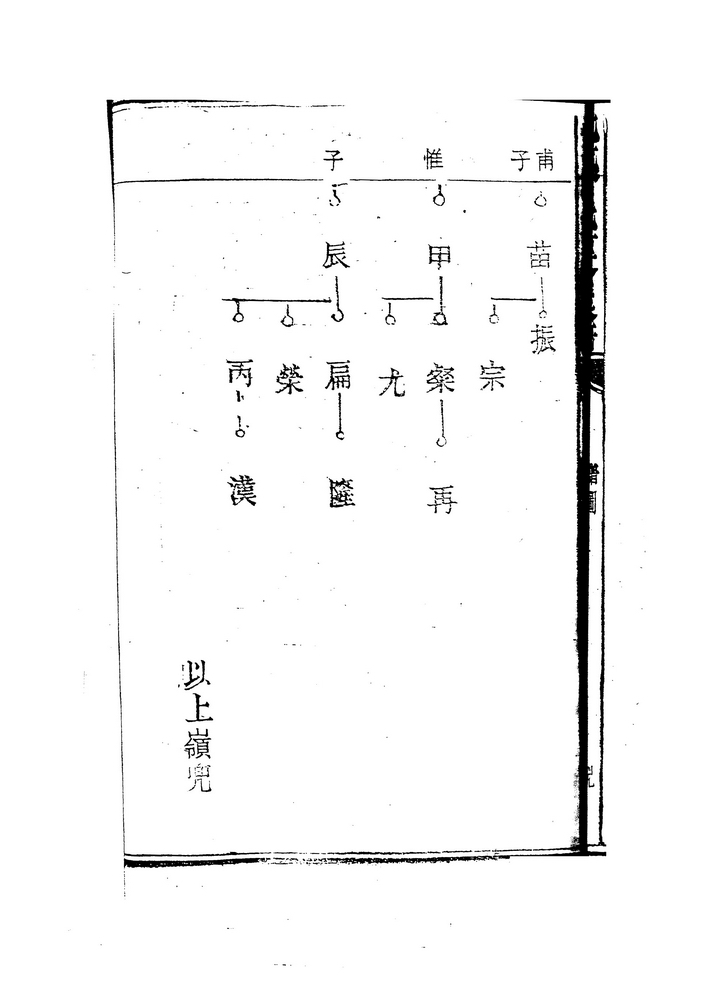 甫子
惟
子
苗
甲
辰
振
宗
燦
尤
扁
榮
丙
再
隆
漢
以上嶺兜
譜圖